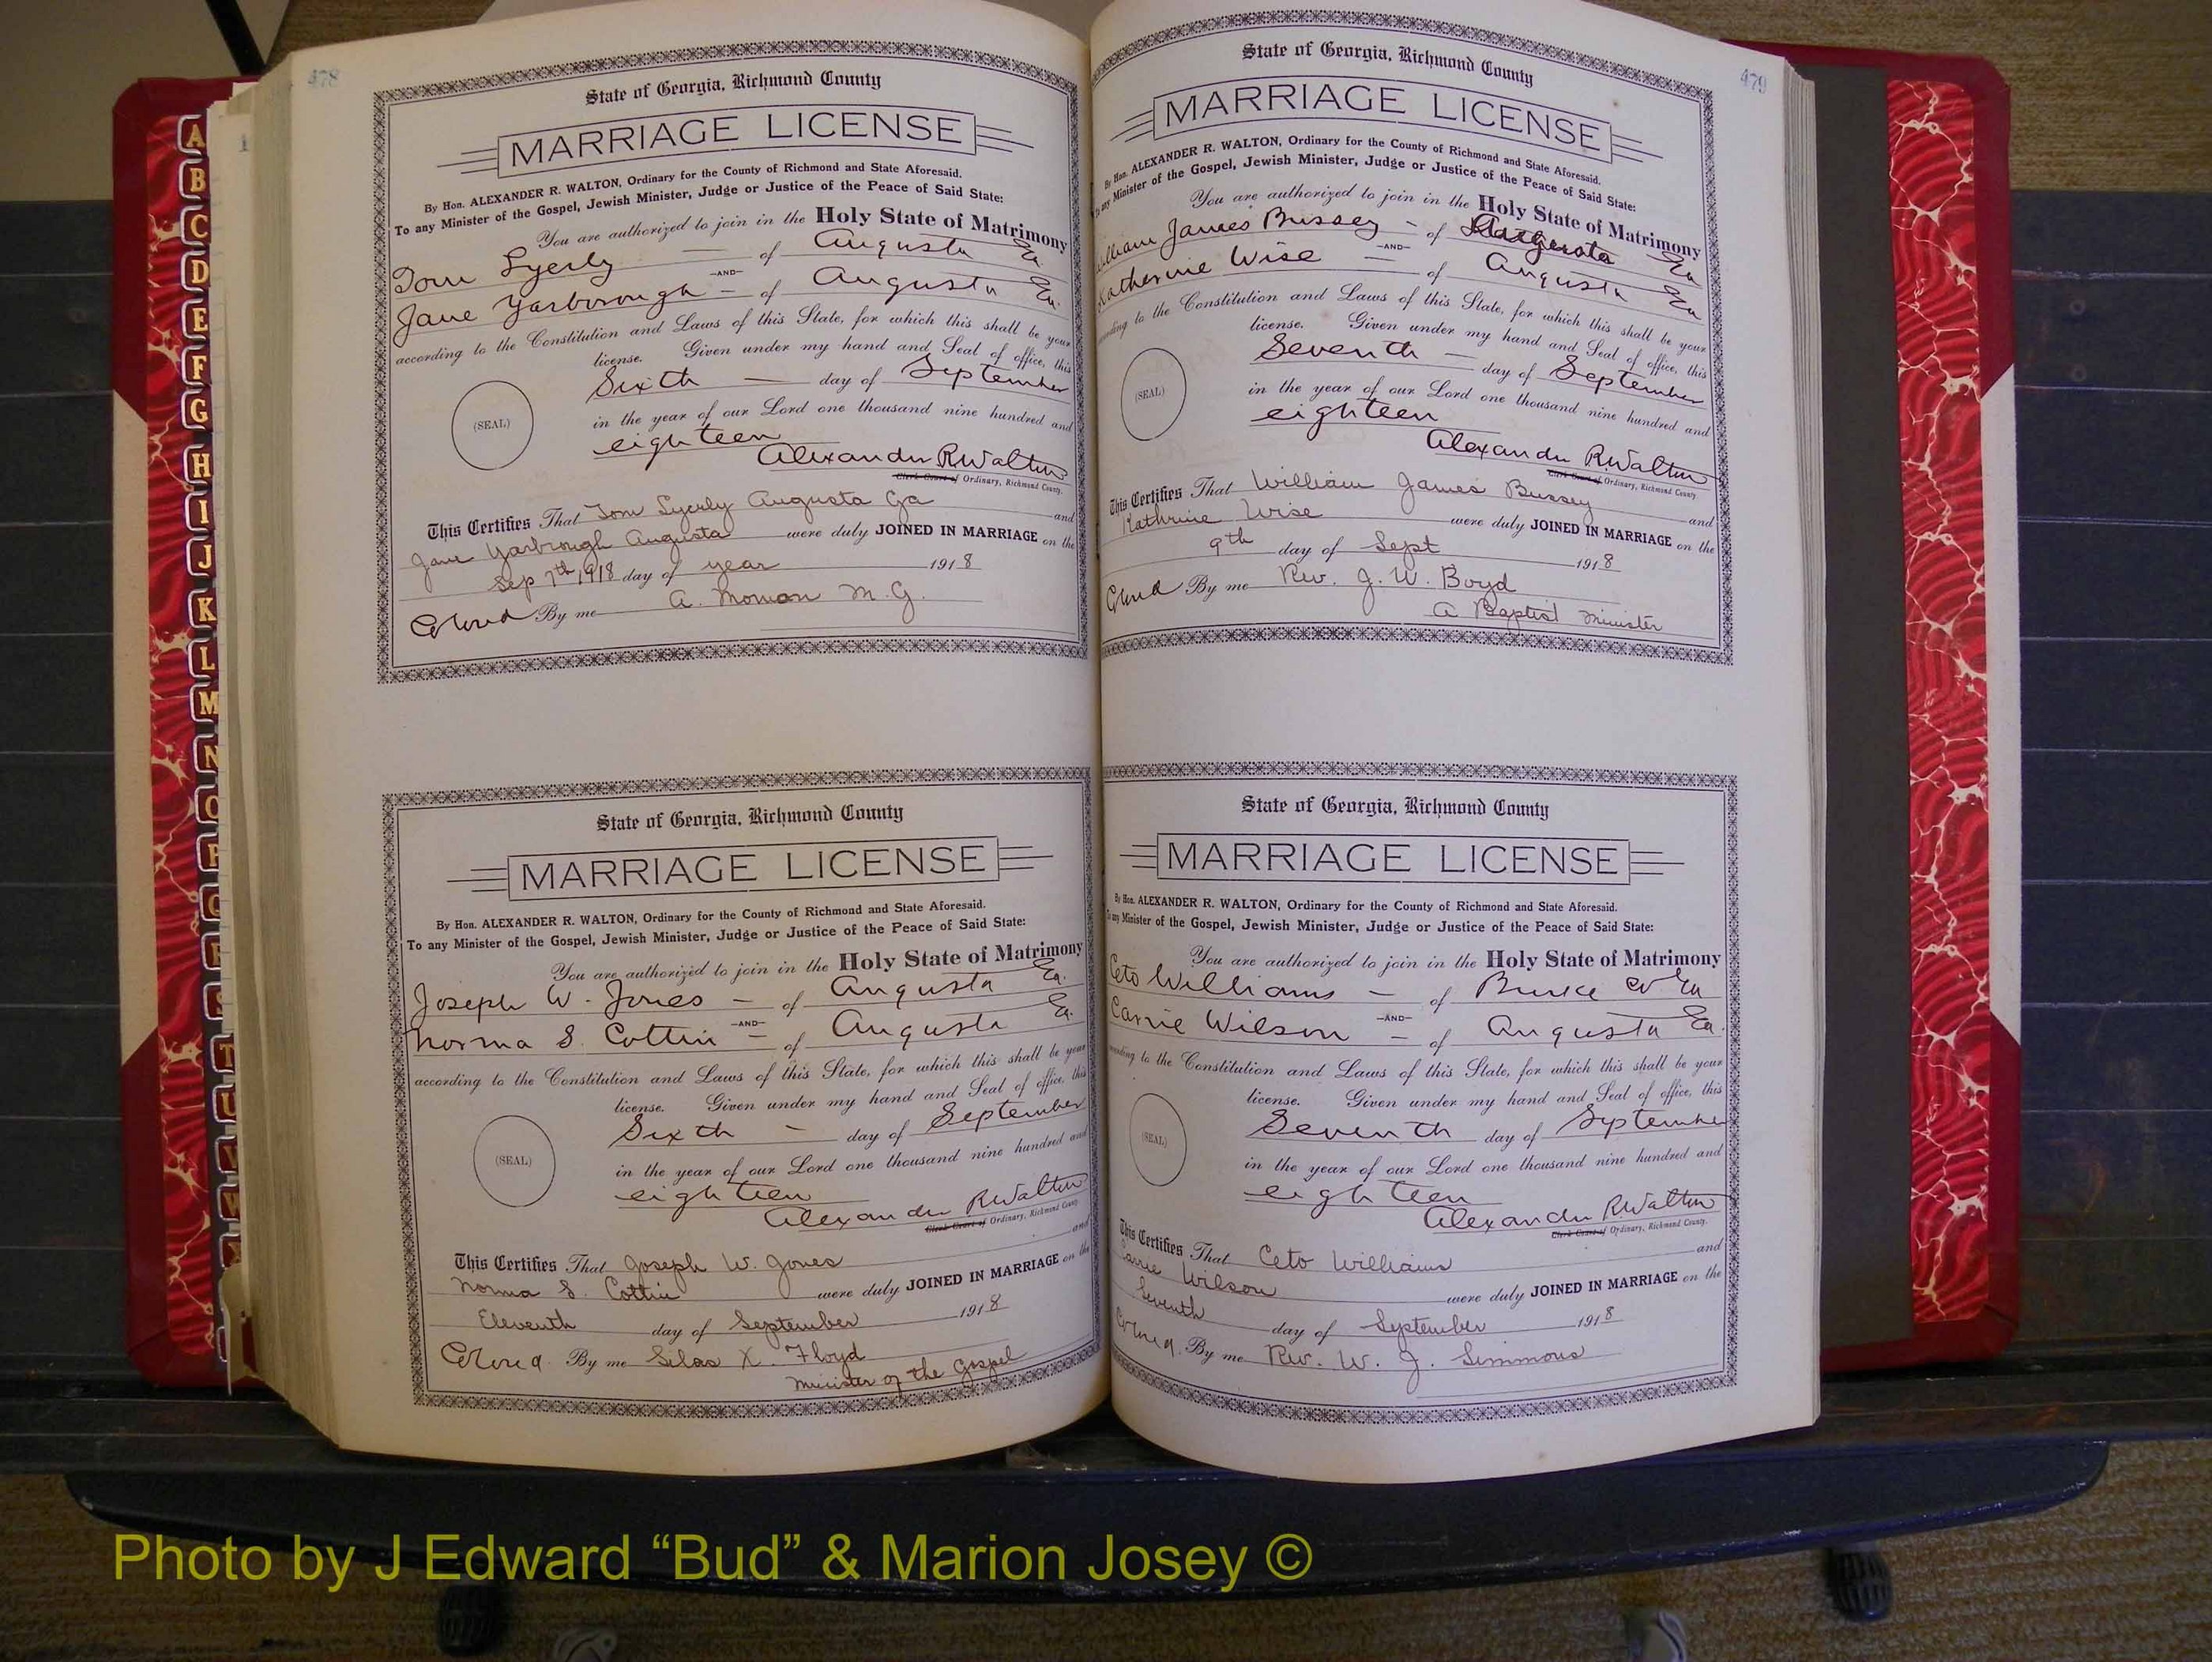 478
State of Georgia, Richmond County
MARRIAGE LICENSE
By Hon. ALEXANDER R. WALTON, Ordinary for the County of Richmond and State Aforesaid.
To any Minister of the Gospel, Jewish Minister, Judge or Justice of the Peace of Said State:
You are authorized to join in the Holy State of Matrimony
Tom Lyerly — of Augusta Ga
—AND—
Jane Yarborough – of Augusta Ga.
according to the Constitution and Laws of this State, for which this shall be your
license. Given under my hand and Seal of office, this
Sixth — day of September
(SEAL)
in the year of our Lord one thousand nine hundred and
eighteen
Alexander R Walton
Clerk Court of Ordinary, Richmond County.
This Certifies That Tom Lyerly Augusta Ga and
Jane Yarbrough Augusta were duly JOINED IN MARRIAGE on the
Sep 7th 1918 day of year 1918
Colored By me A. M. G.
State of Georgia, Richmond County
MARRIAGE LICENSE
By Hon. ALEXANDER R. WALTON, Ordinary for the County of Richmond and State Aforesaid.
To any Minister of the Gospel, Jewish Minister, Judge or Justice of the Peace of Said State:
You are authorized to join in the Holy State of Matrimony
Joseph W. Jones – of Augusta Ga.
—AND—
Norma S. Cottin – of Augusta Ga.
according to the Constitution and Laws of this State, for which this shall be your
license. Given under my hand and Seal of office, this
Sixth – day of September
(SEAL)
in the year of our Lord one thousand nine hundred and
eighteen
Alexander R Walton
Clerk Court of Ordinary, Richmond County
This Certifies That Joseph W. Jones and
Norma S. Cottin were duly JOINED IN MARRIAGE on the
Eleventh day of September 1918
Colored By me Silas X. Floyd
Minister of the Gospel
479
State of Georgia, Richmond County
MARRIAGE LICENSE
By Hon. ALEXANDER R. WALTON, Ordinary for the County of Richmond and State Aforesaid.
To any Minister of the Gospel, Jewish Minister, Judge or Justice of the Peace of Said State:
You are authorized to join in the Holy State of Matrimony
William James Bussey – of Augusta Ga
—AND—
Katherine Wise — of Augusta Ga
according to the Constitution and Laws of this State, for which this shall be your
license. Given under my hand and Seal of office, this
Seventh — day of September
(SEAL)
in the year of our Lord one thousand nine hundred and
eighteen
Alexander R Walton
Clerk Court of Ordinary, Richmond County.
This Certifies That William James Bussey and
Kathrine Wise were duly JOINED IN MARRIAGE on the
9th day of Sept 1918
Colored By me Rev. J. W. Boyd
A Baptist Minister
State of Georgia, Richmond County
MARRIAGE LICENSE
By Hon. ALEXANDER R. WALTON, Ordinary for the County of Richmond and State Aforesaid.
To any Minister of the Gospel, Jewish Minister, Judge or Justice of the Peace of Said State:
You are authorized to join in the Holy State of Matrimony
Ceto Williams – of Burke Co Ga
—AND—
Carrie Wilson – of Augusta Ga.
according to the Constitution and Laws of this State, for which this shall be your
license. Given under my hand and Seal of office, this
Seventh day of September
(SEAL)
in the year of our Lord one thousand nine hundred and
eighteen
Alexander R Walton
Clerk Court of Ordinary, Richmond County.
This Certifies That Ceto Williams and
Carrie Wilson were duly JOINED IN MARRIAGE on the
Seventh day of September 1918
Colored. By me Rev. W. J. Simmons
A
B
C
D
E
F
G
H
I
J
K
L
M
N
O
P
Q
R
S
T
U
V
W
Photo by J Edward “Bud” & Marion Josey ©